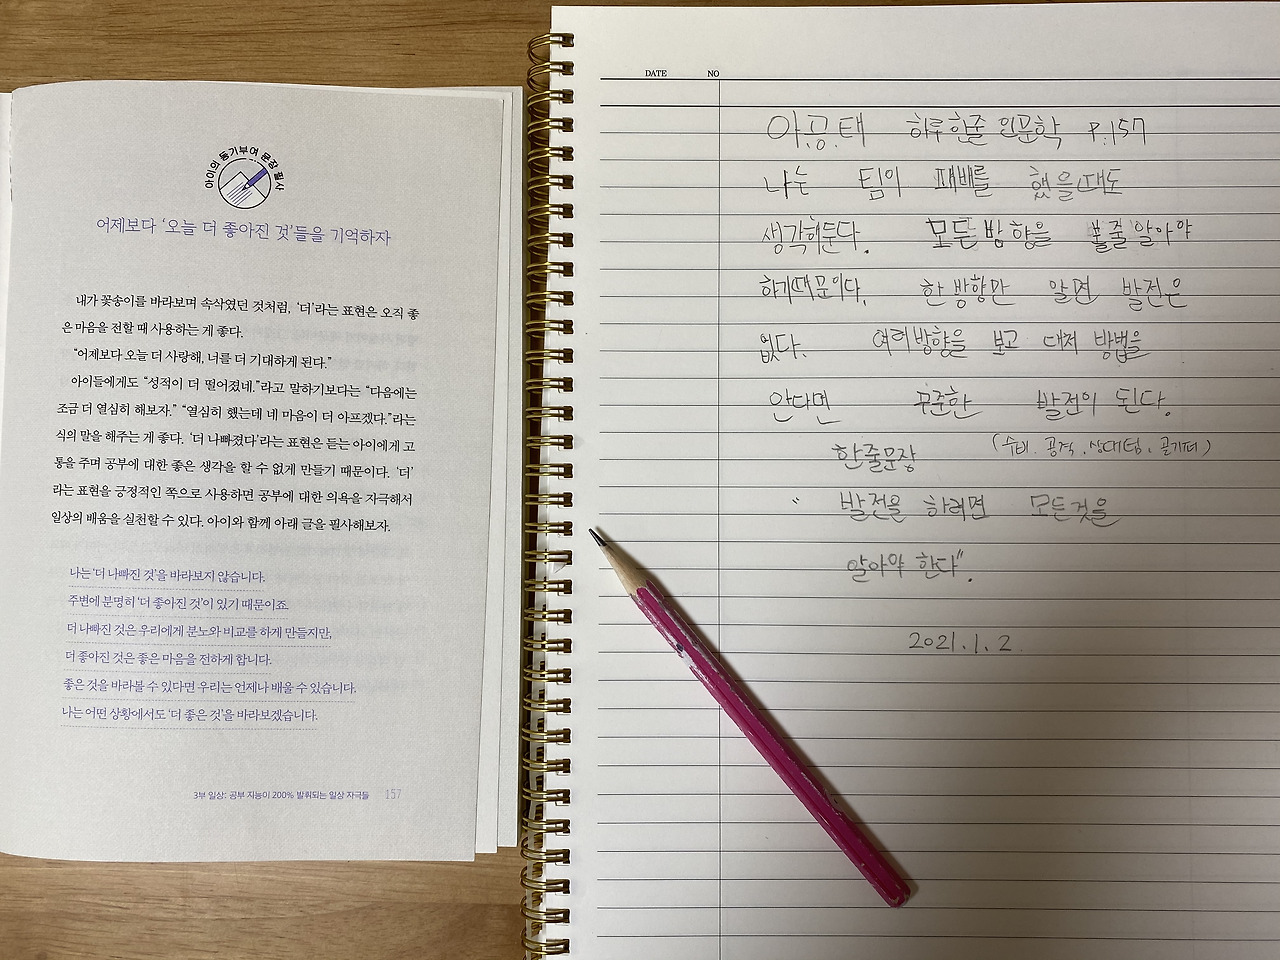 아이의 동기부여 문장 필사
어제보다 ‘오늘 더 좋아진 것’들을 기억하자
내가 꽃송이를 바라보며 속삭였던 것처럼, ‘더’라는 표현은 오직 좋
은 마음을 전할 때 사용하는 게 좋다.
“어제보다 오늘 더 사랑해, 너를 더 기대하게 된다.”
아이들에게도 “성적이 더 떨어졌네.”라고 말하기보다는 “다음에는
조금 더 열심히 해보자.” “열심히 했는데 네 마음이 더 아프겠다.”라는
식의 말을 해주는 게 좋다. ‘더 나빠졌다’라는 표현은 듣는 아이에게 고
통을 주며 공부에 대한 좋은 생각을 할 수 없게 만들기 때문이다. ‘더’
라는 표현을 긍정적인 쪽으로 사용하면 공부에 대한 의욕을 자극해서
일상의 배움을 실천할 수 있다. 아이와 함께 아래 글을 필사해보자.
나는 ‘더 나빠진 것’을 바라보지 않습니다.
주변에 분명히 ‘더 좋아진 것’이 있기 때문이죠.
더 나빠진 것은 우리에게 분노와 비교를 하게 만들지만,
더 좋아진 것은 좋은 마음을 전하게 합니다.
좋은 것을 바라볼 수 있다면 우리는 언제나 배울 수 있습니다.
나는 어떤 상황에서도 ‘더 좋은 것’을 바라보겠습니다.
3부 일상: 공부 지능이 200% 발휘되는 일상 자극들 157
DATE NO
아.공.태 하루한줄 인문학 P.157
나는 팀이 패배를 했을때도
생각해둔다. 모든방향을 볼줄알아야
하기때문이다. 한방향만 알면 발전은
없다. 여러방향을 보고 대처 방법을
안다면 꾸준한 발전이 된다.
한줄문장 (수비. 공격. 상대팀. 골키퍼)
“ 발전을 하려면 모든것을
알아야 한다”.
2021.1.2.